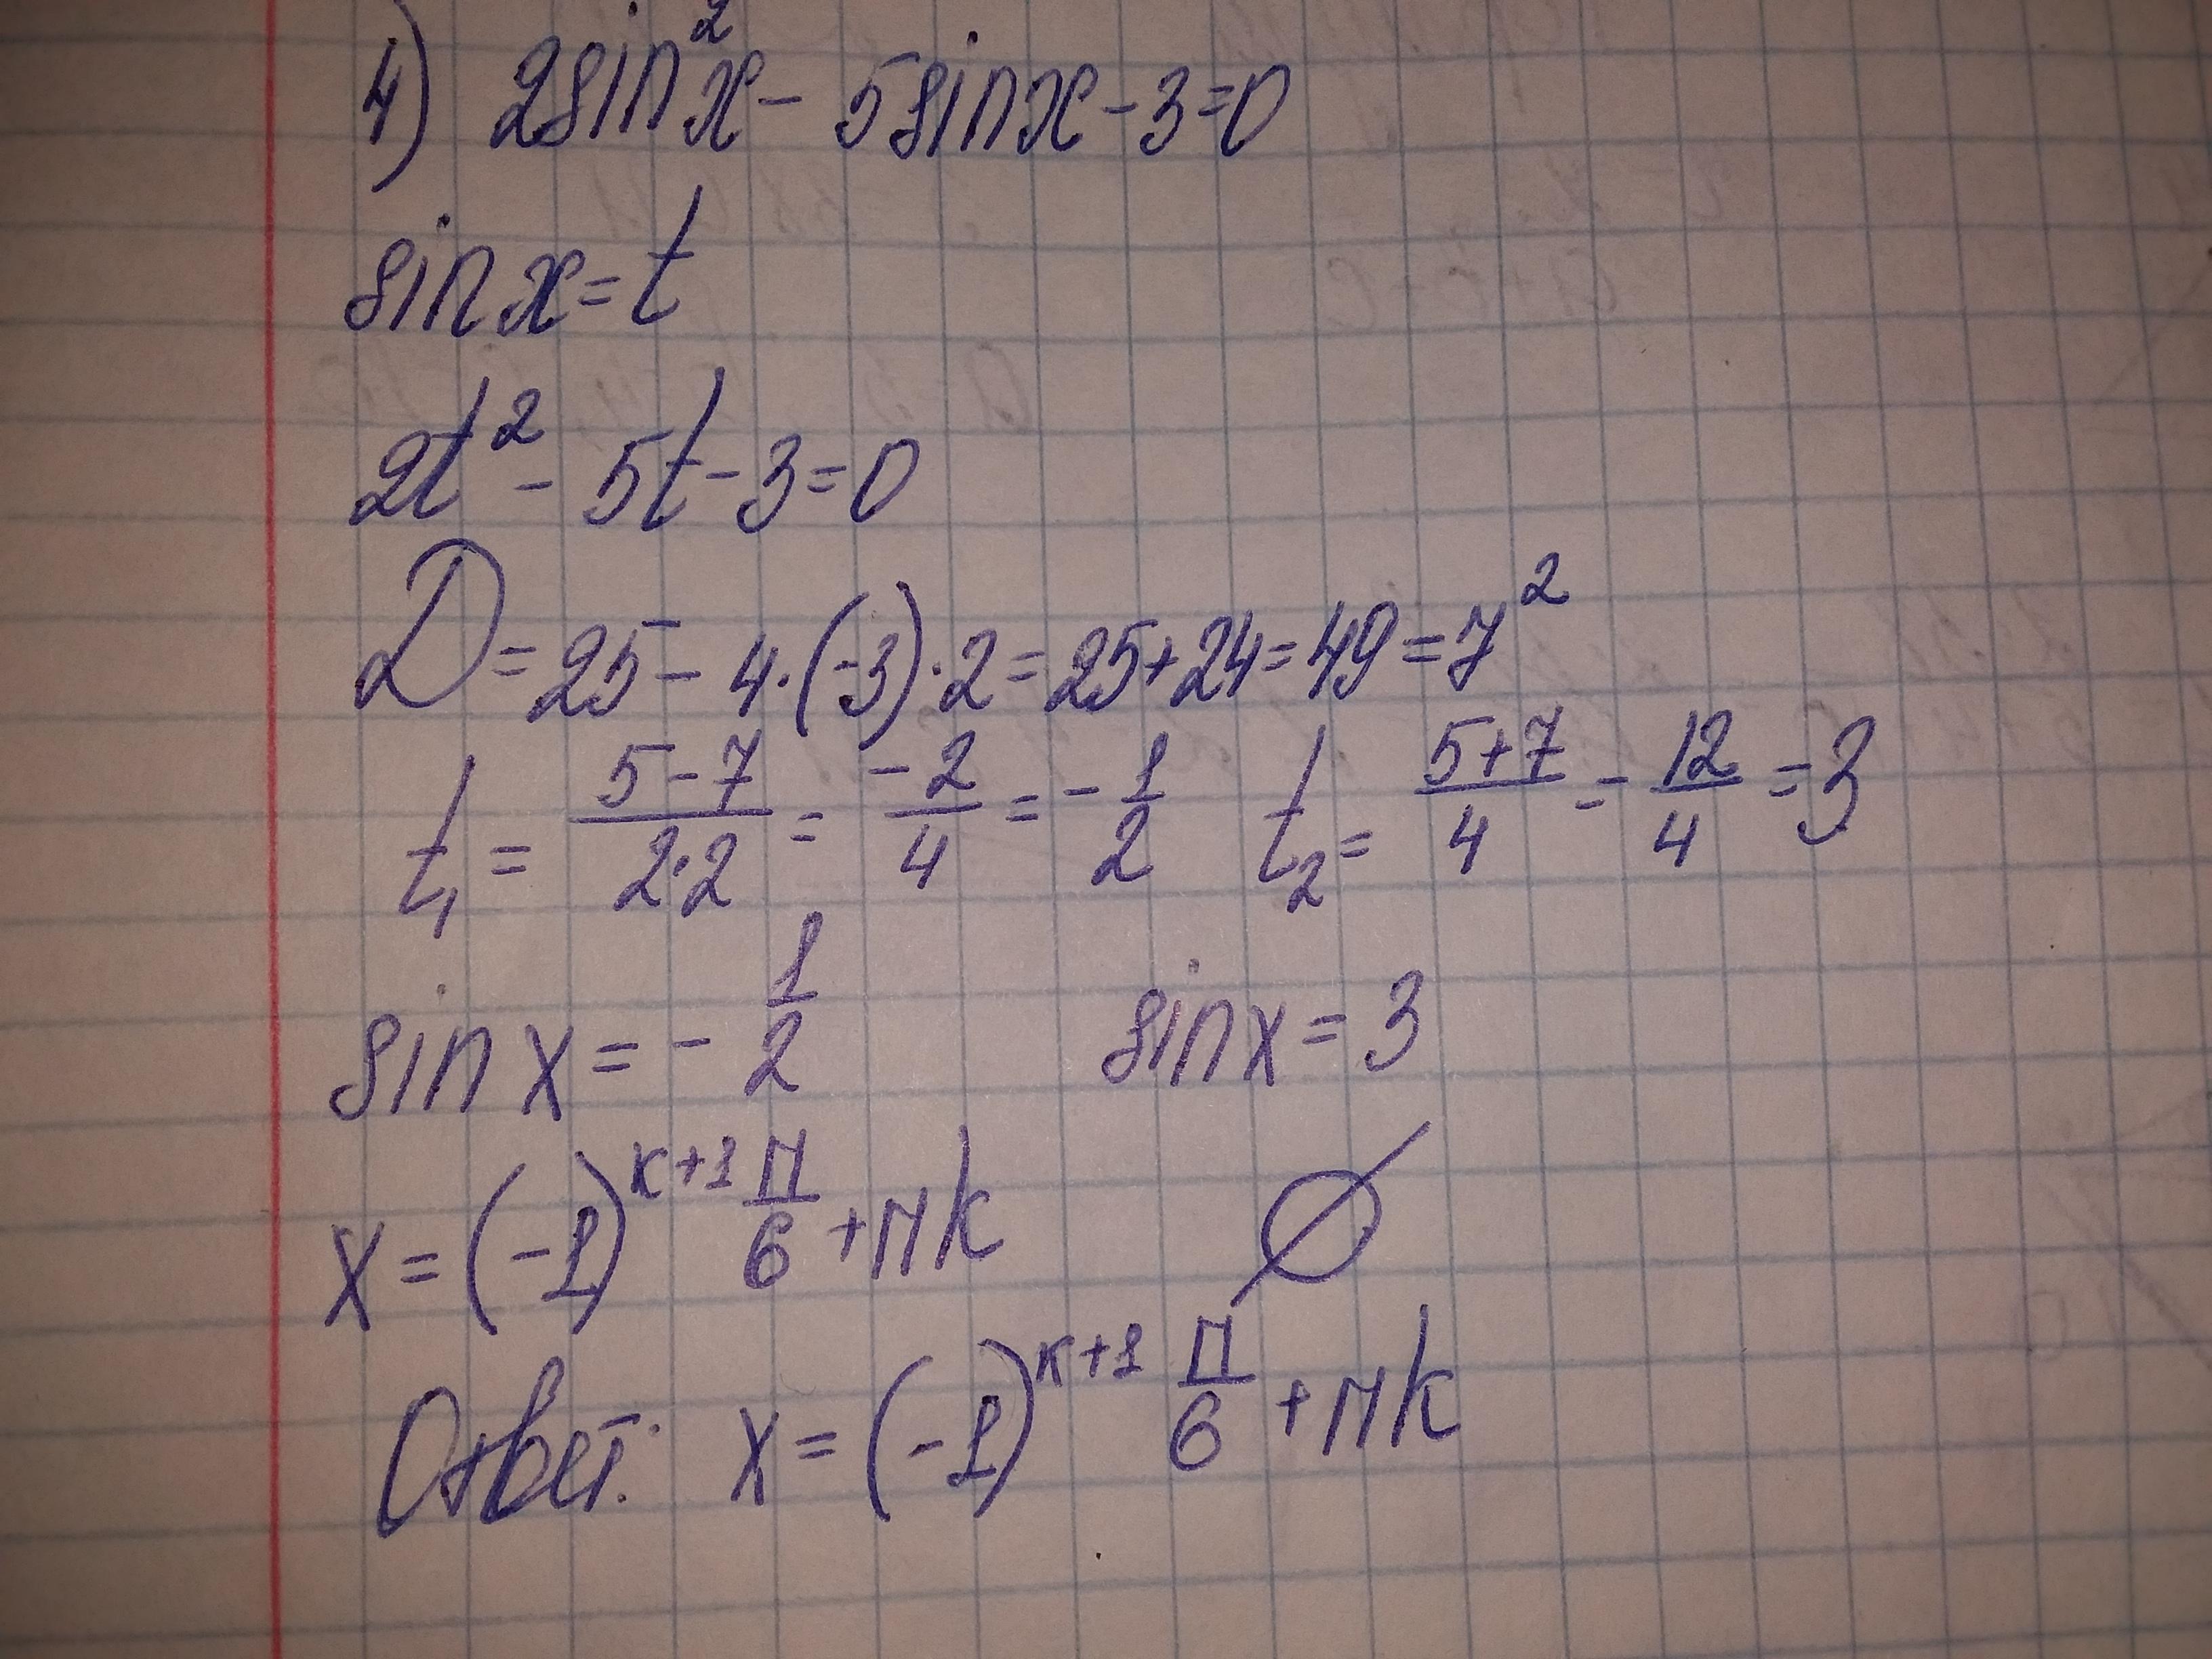 4) 2sin²x - 5sinx - 3 = 0
sin x = t
2t² - 5t - 3 = 0
D = 25 - 4·(-3)·2 = 25 + 24 = 49 = 7²
t₁ = (5-7)/(2·2) = -2/4 = -1/2 t₂ = (5+7)/4 = 12/4 = 3
sin x = -1/2 sin x = 3
x = (-1)^(k+1) π/6 + πk ∅
Ответ: x = (-1)^(k+1) π/6 + πk